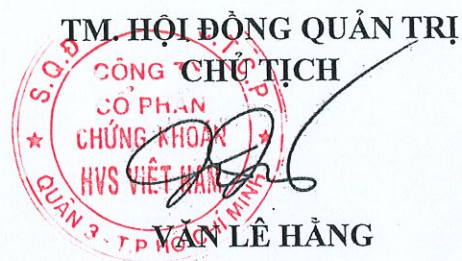 TM. HỘI ĐỒNG QUẢN TRỊ
CHỦ TỊCH
CÔNG
CỔ PHẦN
CHỨNG KHOÁN
HVS VIỆT NAM
QUẬN 3 - T.P HỒ CHÍ MINH
VĂN LÊ HẰNG